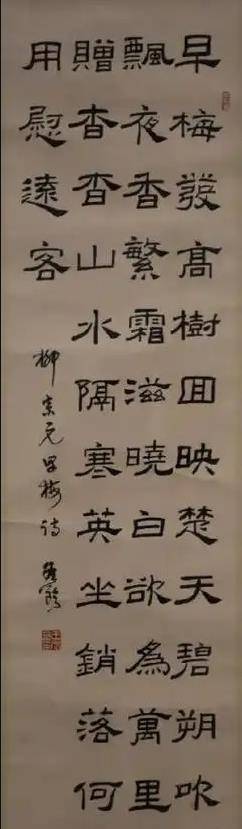 早梅發高樹囬映楚天碧朔吹
飄夜香繁霜滋曉白欲為萬里
贈杳杳山水隔寒英坐銷落何
用慰遠客
柳宗元早梅詩